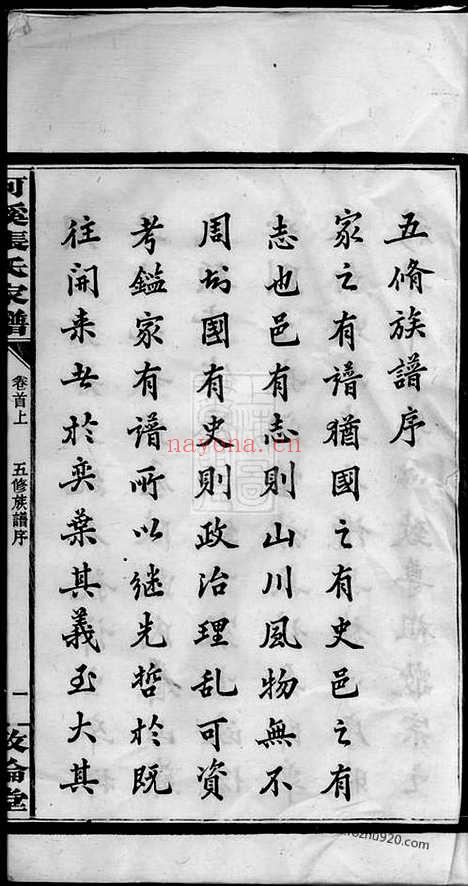 五脩族譜序
家之有譜猶國之有史邑之有
志也邑有志則山川風物無不
周知國有史則政治理亂可資
考鑑家有譜所以继先哲於既
往開来者於奕葉其義至大其
河溪張氏家譜
卷首上
五修族譜序
一
敦倫堂
nayona.cn